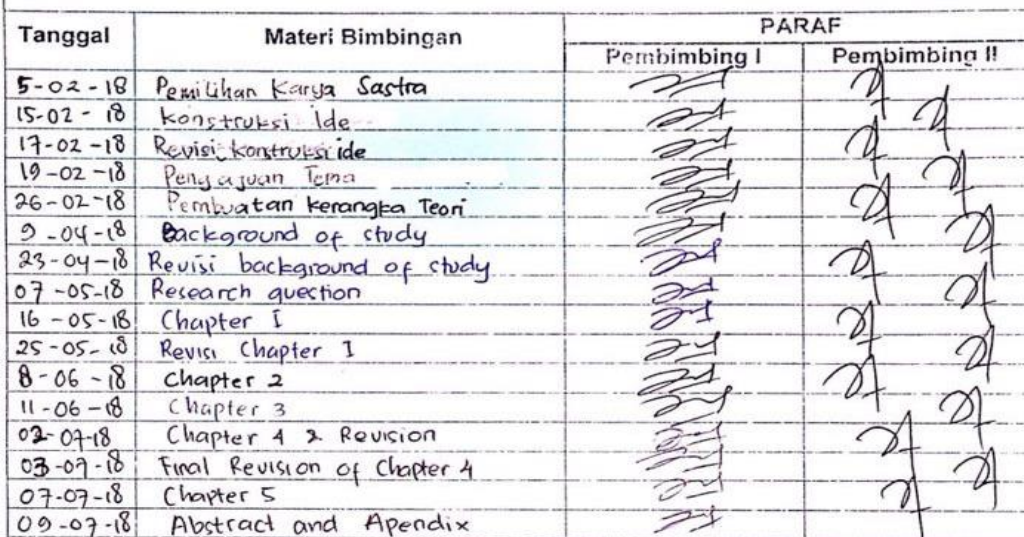 Tanggal Materi Bimbingan PARAF
Pembimbing I Pembimbing II
5-02-18 Pemilihan Karya Sastra
15-02-18 Konstruksi Ide
17-02-18 Revisi Konstruksi ide
19-02-18 Pengajuan Tema
26-02-18 Pembuatan kerangka Teori
9-04-18 Background of study
23-04-18 Revisi background of study
07-05-18 Research question
16-05-18 Chapter I
25-05-18 Revisi Chapter I
8-06-18 Chapter 2
11-06-18 Chapter 3
02-07-18 Chapter 4 & Revision
03-07-18 Final Revision of Chapter 4
07-07-18 Chapter 5
09-07-18 Abstract and Apendix